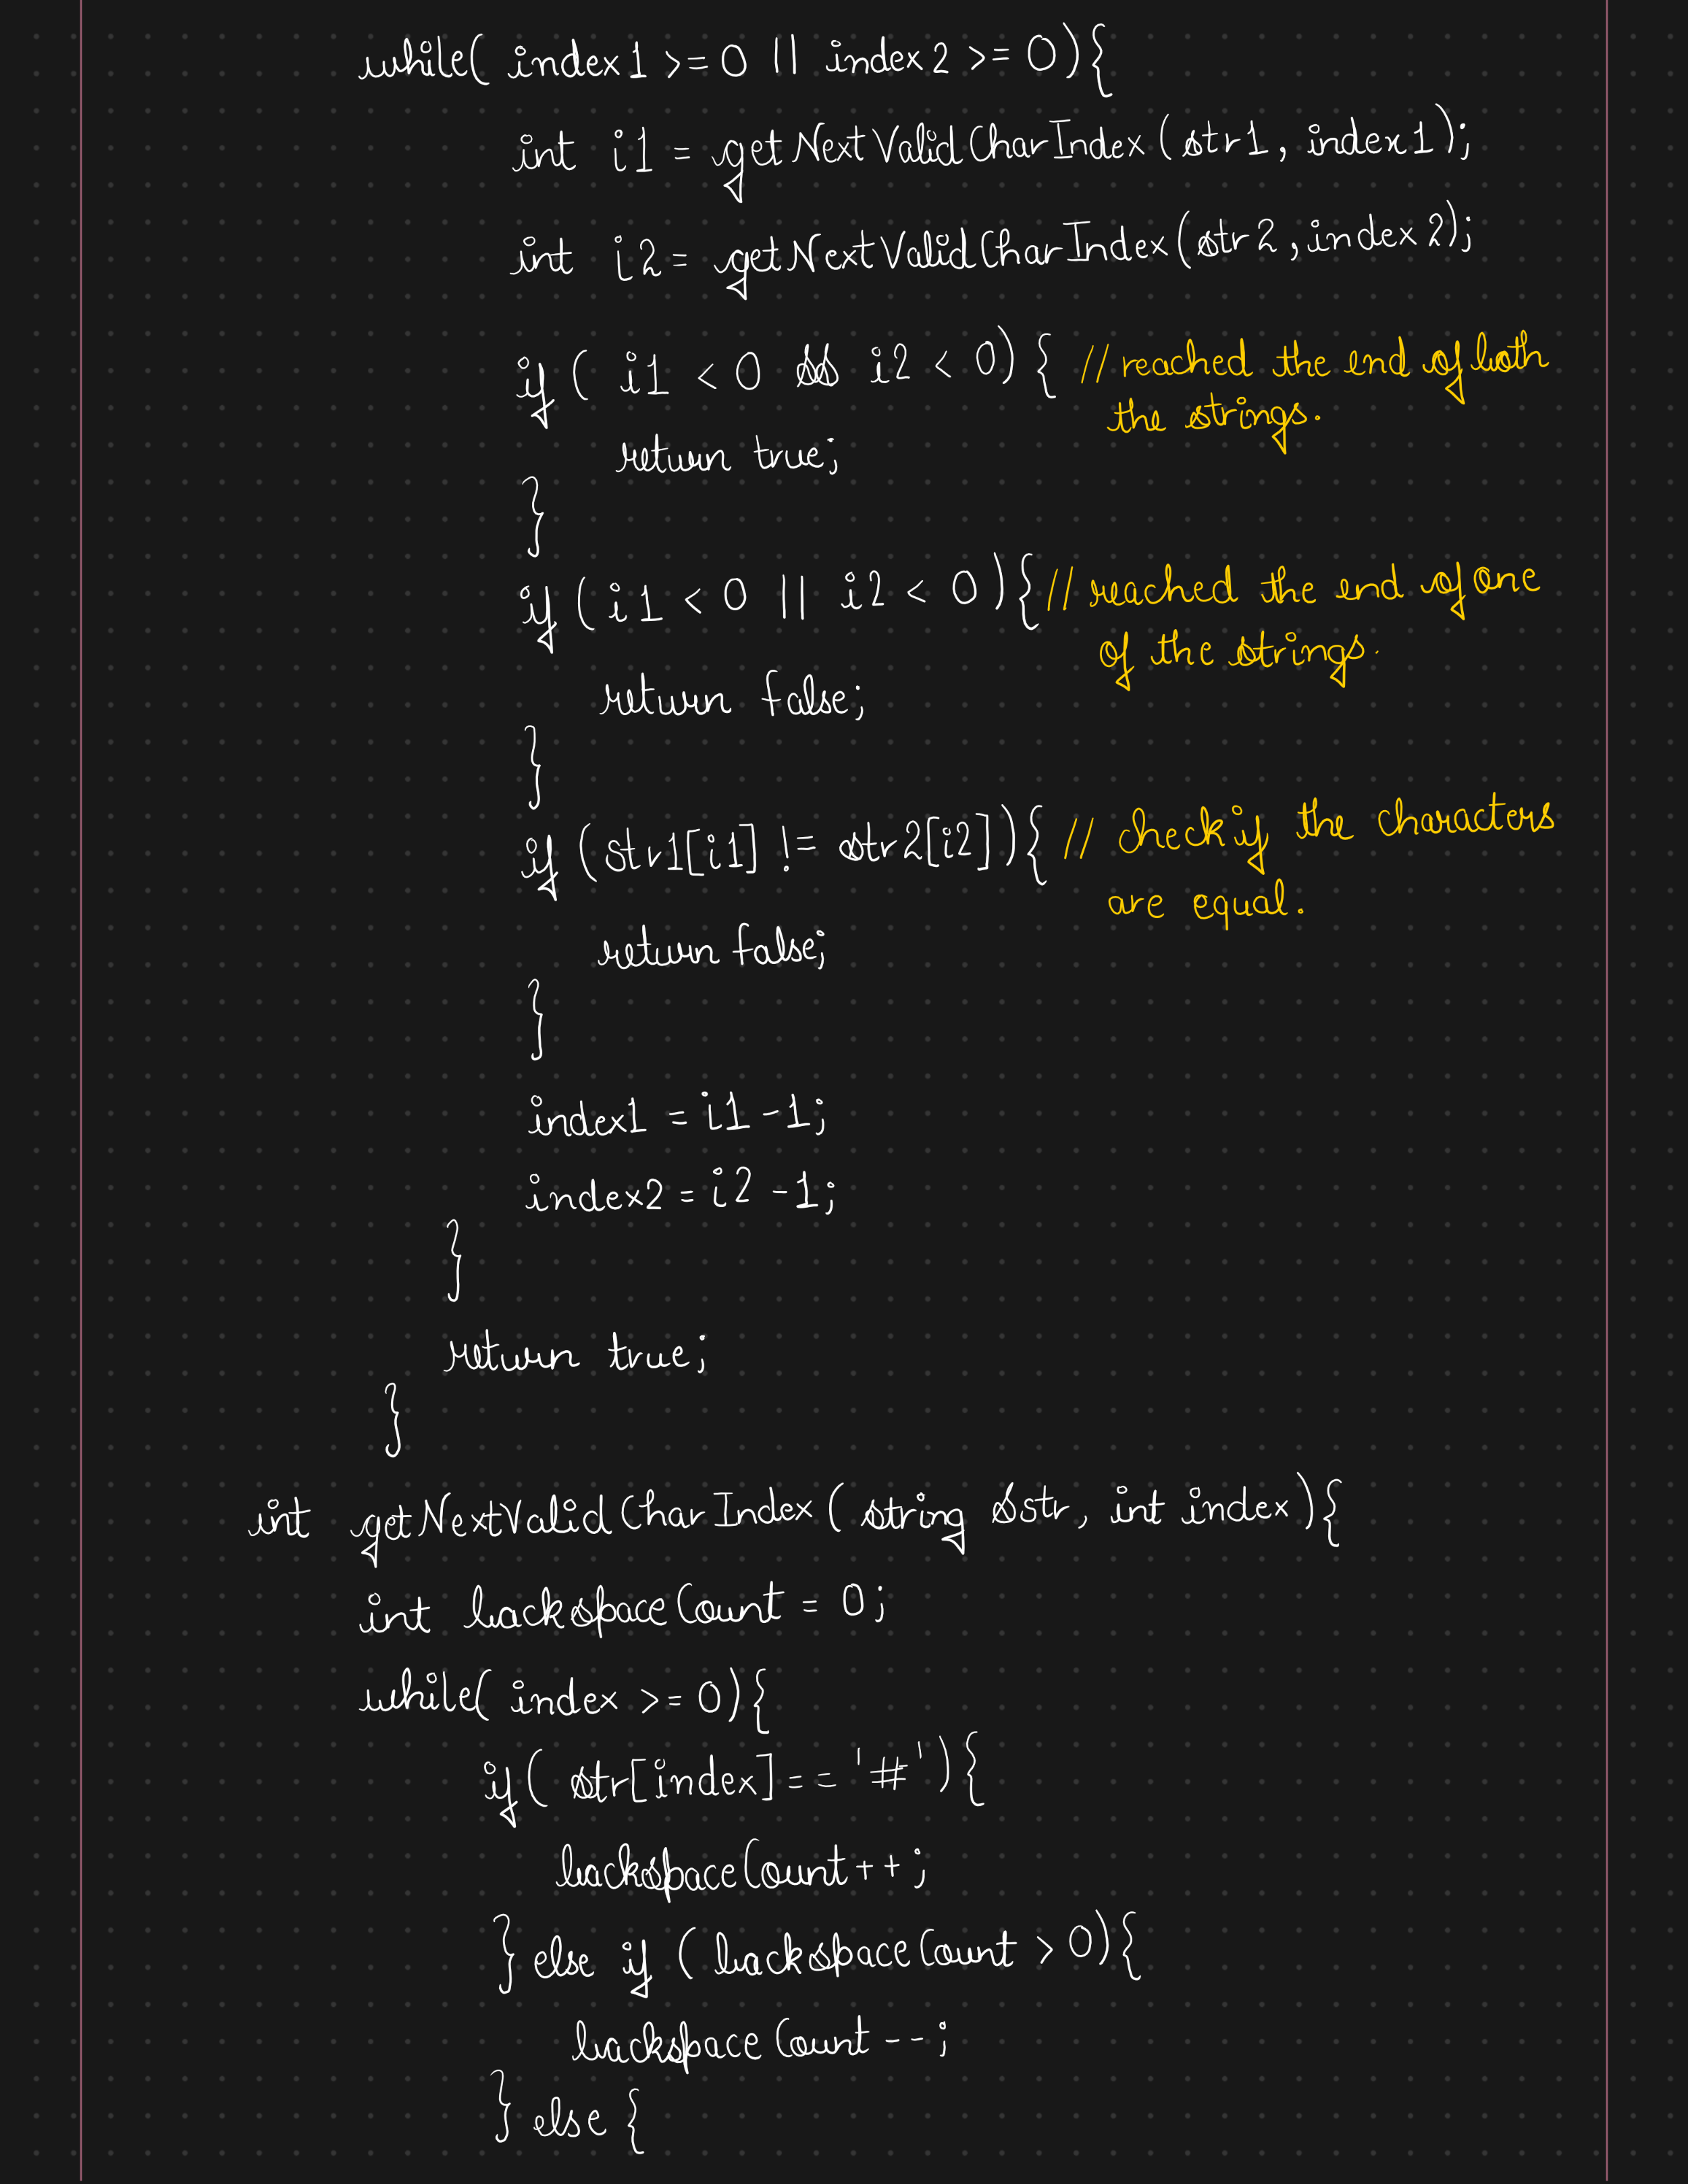 while( index1 >= 0 || index2 >= 0){
int i1 = getNextValidCharIndex(str1, index1);
int i2 = getNextValidCharIndex(str2, index2);
if( i1 < 0 && i2 < 0) { // reached the end of both
the strings.
return true;
}
if (i1 < 0 || i2 < 0){ // reached the end of one
of the strings.
return false;
}
if (str1[i1] != str2[i2]){ // check if the characters
are equal.
return false;
}
index1 = i1 -1;
index2 = i2 -1;
}
return true;
}
int getNextValidCharIndex( string &str, int index){
int backspaceCount = 0;
while( index >= 0){
if( str[index] == '#'){
backspaceCount++;
} else if (backspaceCount > 0){
backspaceCount--;
} else {